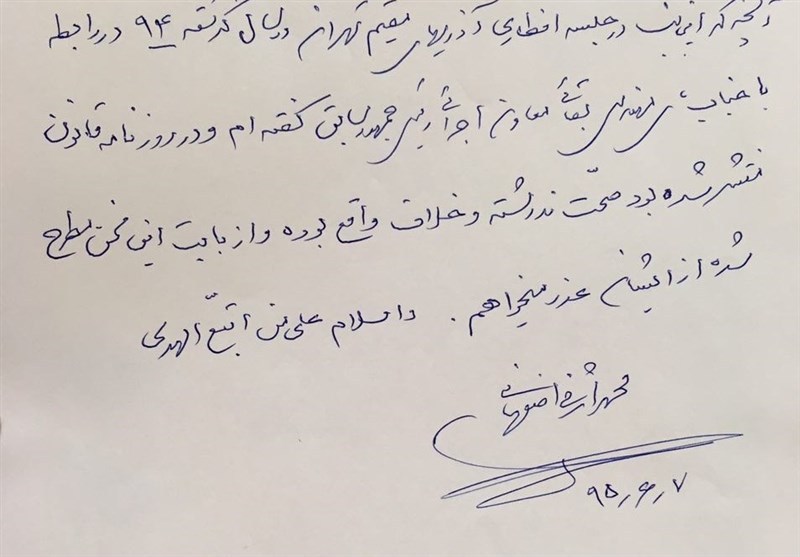 آنچه که اینجانب در جلسه افطاری آذریهای مقیم تهران در سال گذشته ۹۴ در رابطه
با جناب آقای مهندس بقائی معاون اجرائی رئیس جمهور سابق گفته ام و در روزنامه قانون
منتشر شده بود صحّت نداشته و خلاف واقع بوده و از بابت این سخن مطرح
شده از ایشان عذر میخواهم . والسلام علی من اتبّع الهدی
محمد اشرفی اصفهانی
۹۵٫۶٫۷